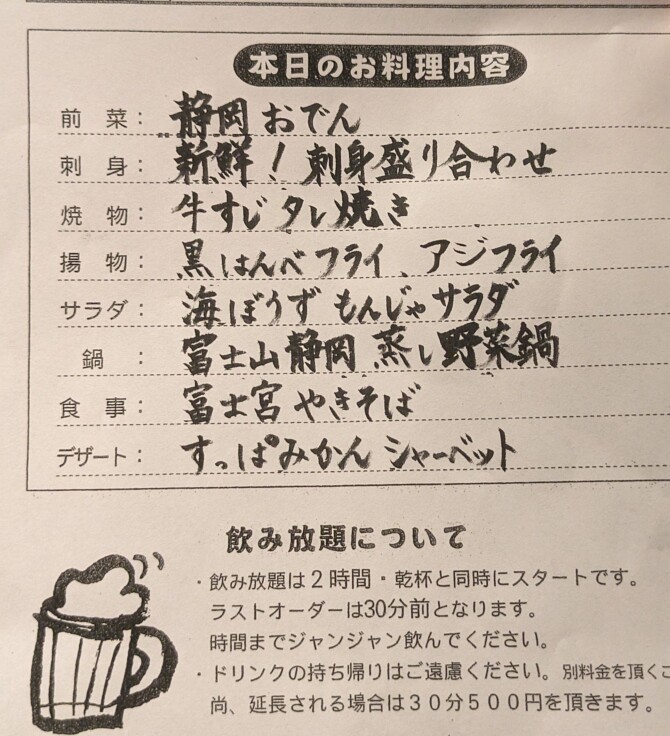 本日のお料理内容
前菜： 静岡おでん
刺身： 新鮮！刺身盛り合わせ
焼物： 牛すじタレ焼き
揚物： 黒はんぺフライ、アジフライ
サラダ： 海ぼうずもんじゃサラダ
鍋： 富士山静岡蒸し野菜鍋
食事： 富士宮やきそば
デザート： すっぱみかんシャーベット
飲み放題について
・飲み放題は２時間・乾杯と同時にスタートです。
ラストオーダーは30分前となります。
時間までジャンジャン飲んでください。
・ドリンクの持ち帰りはご遠慮ください。別料金を頂くこ
尚、延長される場合は３０分５００円を頂きます。